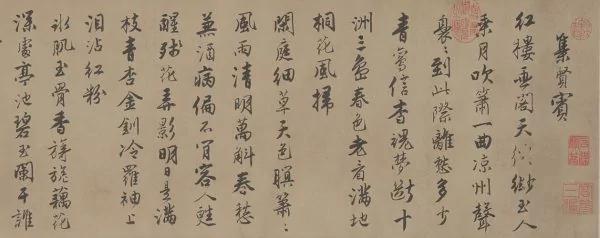 集賢賓
紅樓閣天縹緲玉人
乘月吹簫一曲涼州聲
裊〻到此際離愁多少
青鸞信杳魂夢十
洲三島春色老看滿地
桐花風掃
閑庭細草天色暝蕭〻
風雨清明萬斛春愁
兼酒病偏不肯容人甦
醒殘花弄影明日是滿
枝青杏金釧冷羅袖上
淚沾紅粉
冰肌玉骨香旖旎藕花
深處亭池碧玉闌干誰